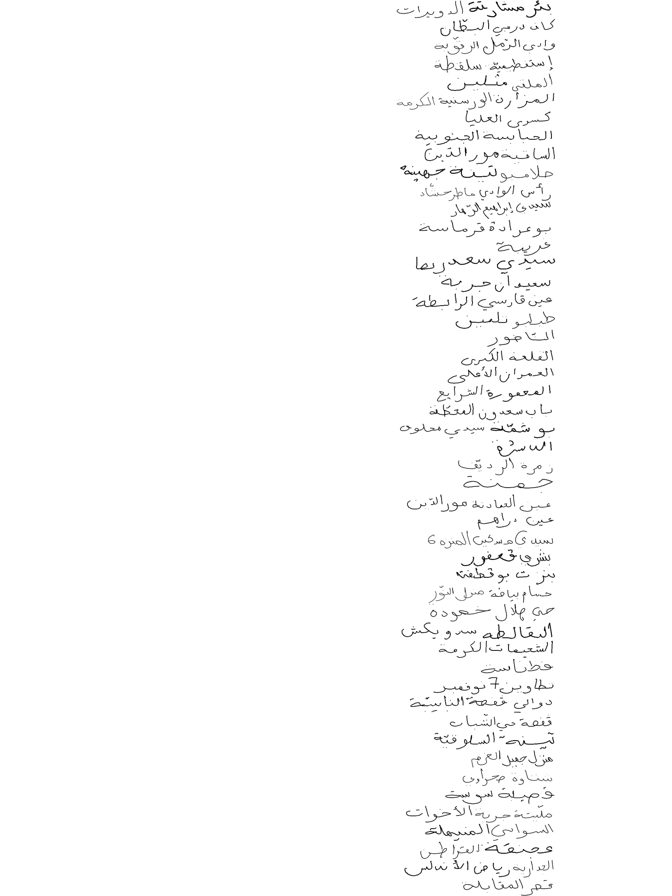 بئر مستارنة الدويرات
كاف درمي البطّان
وادي الرّمل الرقوبة
إسنعطيميّة سلقطة
الملتي مثلين
المزارن الورسنية الكرمة
كسرى العليا
الحبابسة الجنوبية
الساقية نور الدّين
حلامبو تينة جهينة
رأس الوادي ماطر حشاد
سيدي إبراهيم الزّهار
بوعرادة قرماسة
غريبة
سيدي سعد ريما
سعيدان جربة
عين فارسي الرابطة
طبلبو تلمين
الناظور
القلعة الكبرى
العمران الأعلى
المعمورة الشرايع
باب سعدون المحطة
بوشمّة سيدي مخلوف
الدشرة
زمرة الرديّف
جمنة
نور الدّين
عين دراهم
سيدي حسين المنزه 6
بشري قعفور
بنزرت بوقطفة
حسام بياضة منزل النّور
حي هلال حمودة
البقالطة سدويكش
الشعيمات الكرمة
غطناسة
تطاوين 7 نوفمبر
دوالي قفصة
قفصة حي الشباب
تيبنة السلوقيّة
منزل جميل العرم
سناوة صحراوي
فصيلة سوسة
مليتة جربة الأخوات
السواسي المنيهلة
عصنقة القراطن
رياض الأندلس
قصر المقابلة